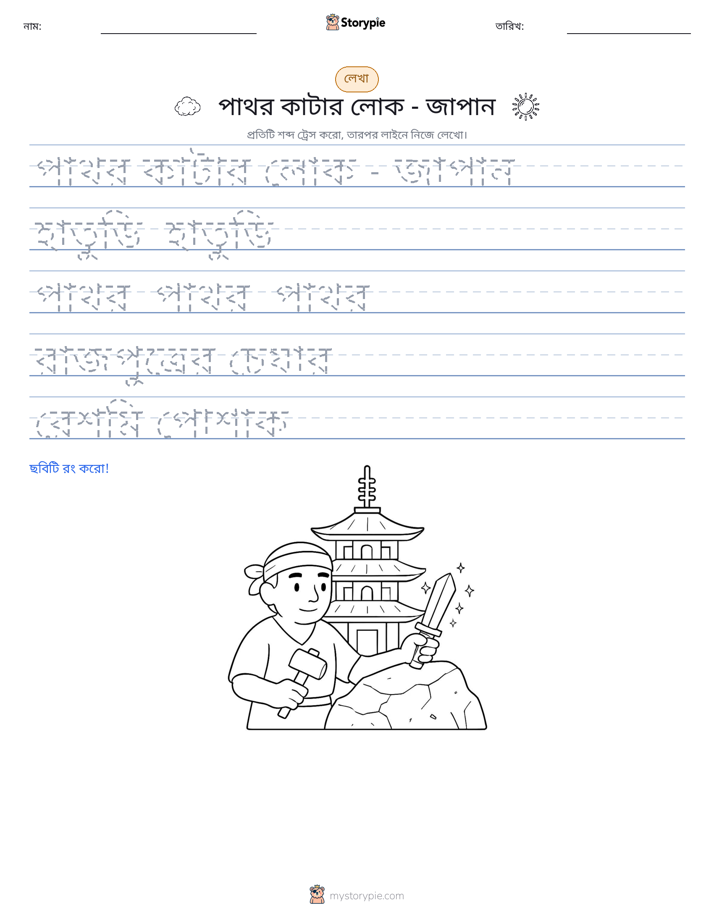 নাম:
Storypie
তারিখ:
লেখা
পাথর কাটার লোক - জাপান
প্রতিটি শব্দ ট্রেস করো, তারপর লাইনে নিজে লেখো।
পাথর কাটার লোক - জাপান
হাতুড়ি হাতুড়ি
পাথর পাথর পাথর
রাজপুত্রের চেয়ার
রেশমি পোশাক
ছবিটি রং করো!
mystorypie.com